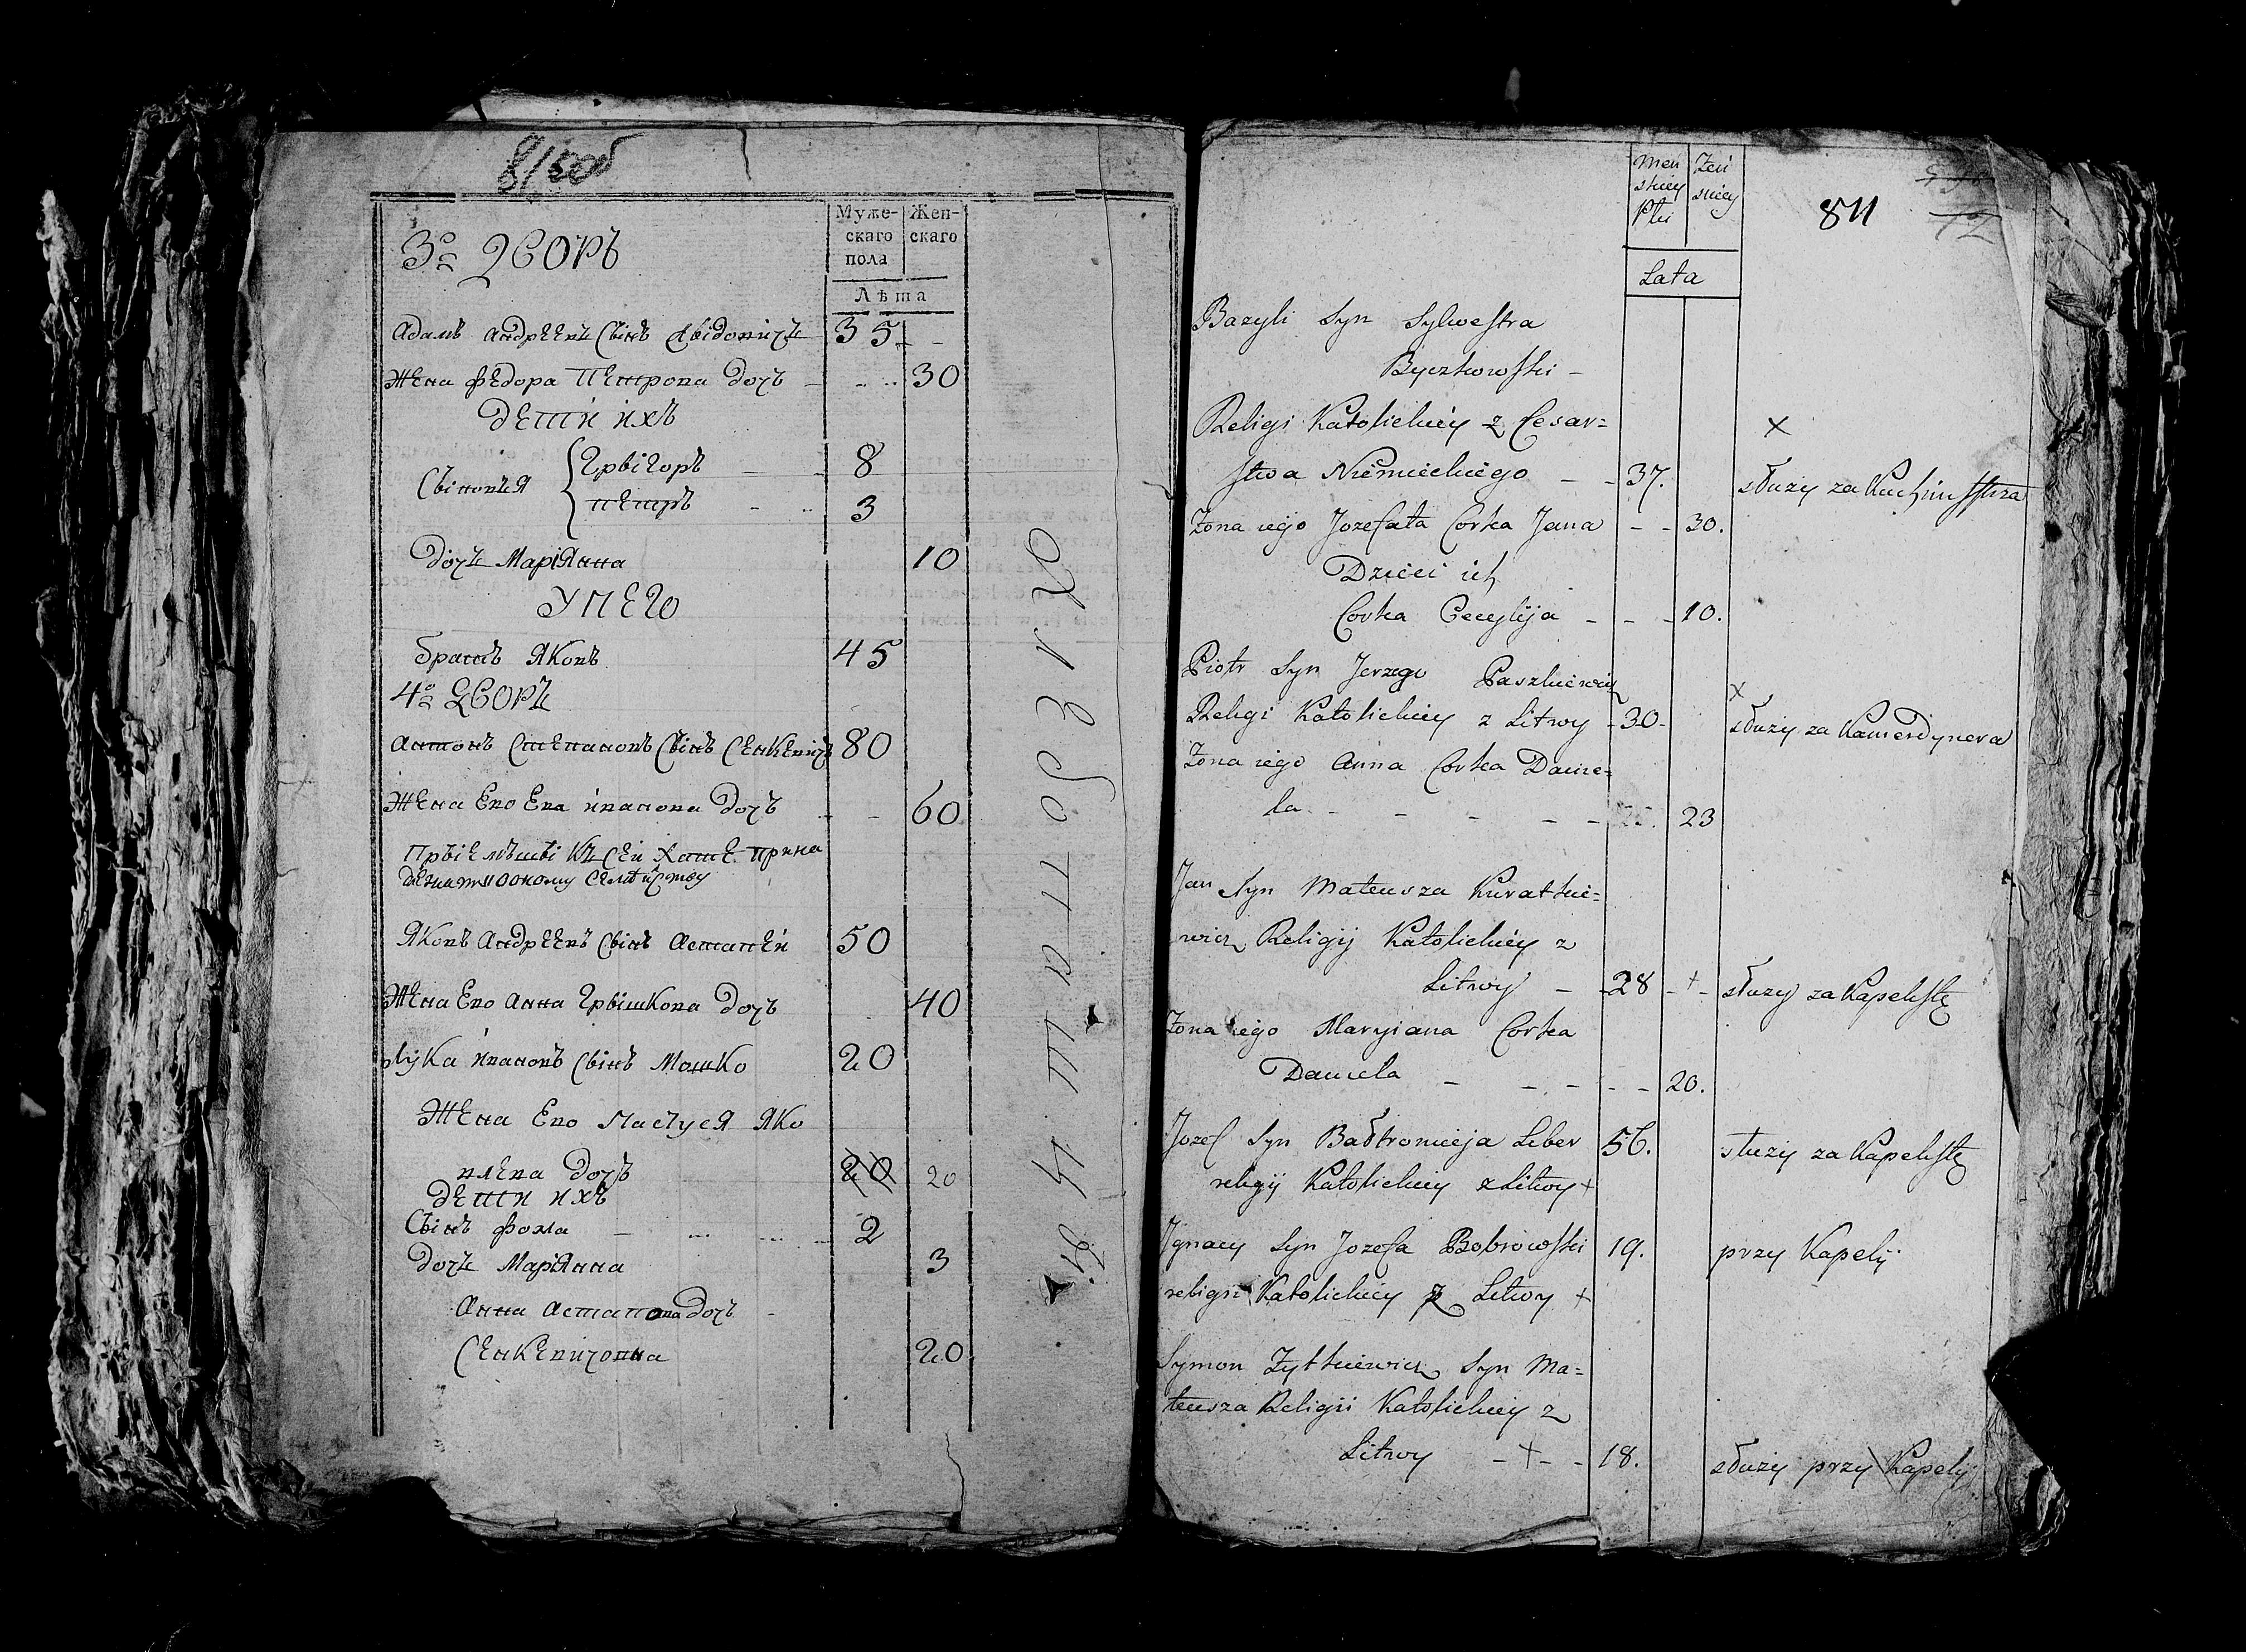 810об
3й дворъ
Муже-
скаго
пола
Жен-
скаго
Лѣта
Адамъ Андрѣевъ Сынъ Авідовичъ 35
Жена Федора Петрова дочъ 30
Дети ихъ
Сыновья { Грыгоръ 8
Петръ 3
дочь Маріянна 10
У него
братъ Яковъ 45
4й дворъ
Антонъ Степановъ Сынъ Сенкевичъ 80
Жена Ево Ева Иванова Дочъ 60
Яковъ Андрѣевъ Сынъ Астапеи 50
Жена Ево Анна Грышкова Дочъ 40
Лука Ивановъ Сынъ Мошко 20
Жена Ево Настуся Яко
влева Дочъ 20 20
Дети ихъ
Сынъ Фома 2
Дочь Маріянна 3
Анна Астапова Дочъ
Сенкевичовна 20
Men
skiey
Płci
Zen
skiey
811
12
Lata
Bazyli Syn Sylwestra
Byczkowski -
Religi Katolickiey z Cesar=
stwa Niemieckiego - - 37.
x
słuzy za Kuchmistrza
Zona iego Jozefata Corka Jana - - 30.
Dzieci ich
Corka Cecylija - - - 10.
Piotr Syn Jerzego Paszkiewicz
Religi Katolickiey z Litwy - 30 -
x
słuzy za Kamerdynera
Zona iego Anna Corka Danie=
la. - - - - - 23
Jan Syn Mateusza Kuratkie=
wicz Religij Katolickiey z
Litwy - - 28 - + - słuzy za Kapelistę
Zona iego Maryiana Corka
Daniela - - - - - 20.
Jozef Syn Bałtromieja Leber 56. słuzy za Kapelistę
religij Katolickiey z Litwy +
Ignacy Syn Jozefa Bobrowski 19. przy Kapelij
religii Katolickiey z Litwy +
Symon Zytkiewicz Syn Ma=
teusza Religii Katolickiey z
Litwy - + - - 18. słuzy przy Kapelij